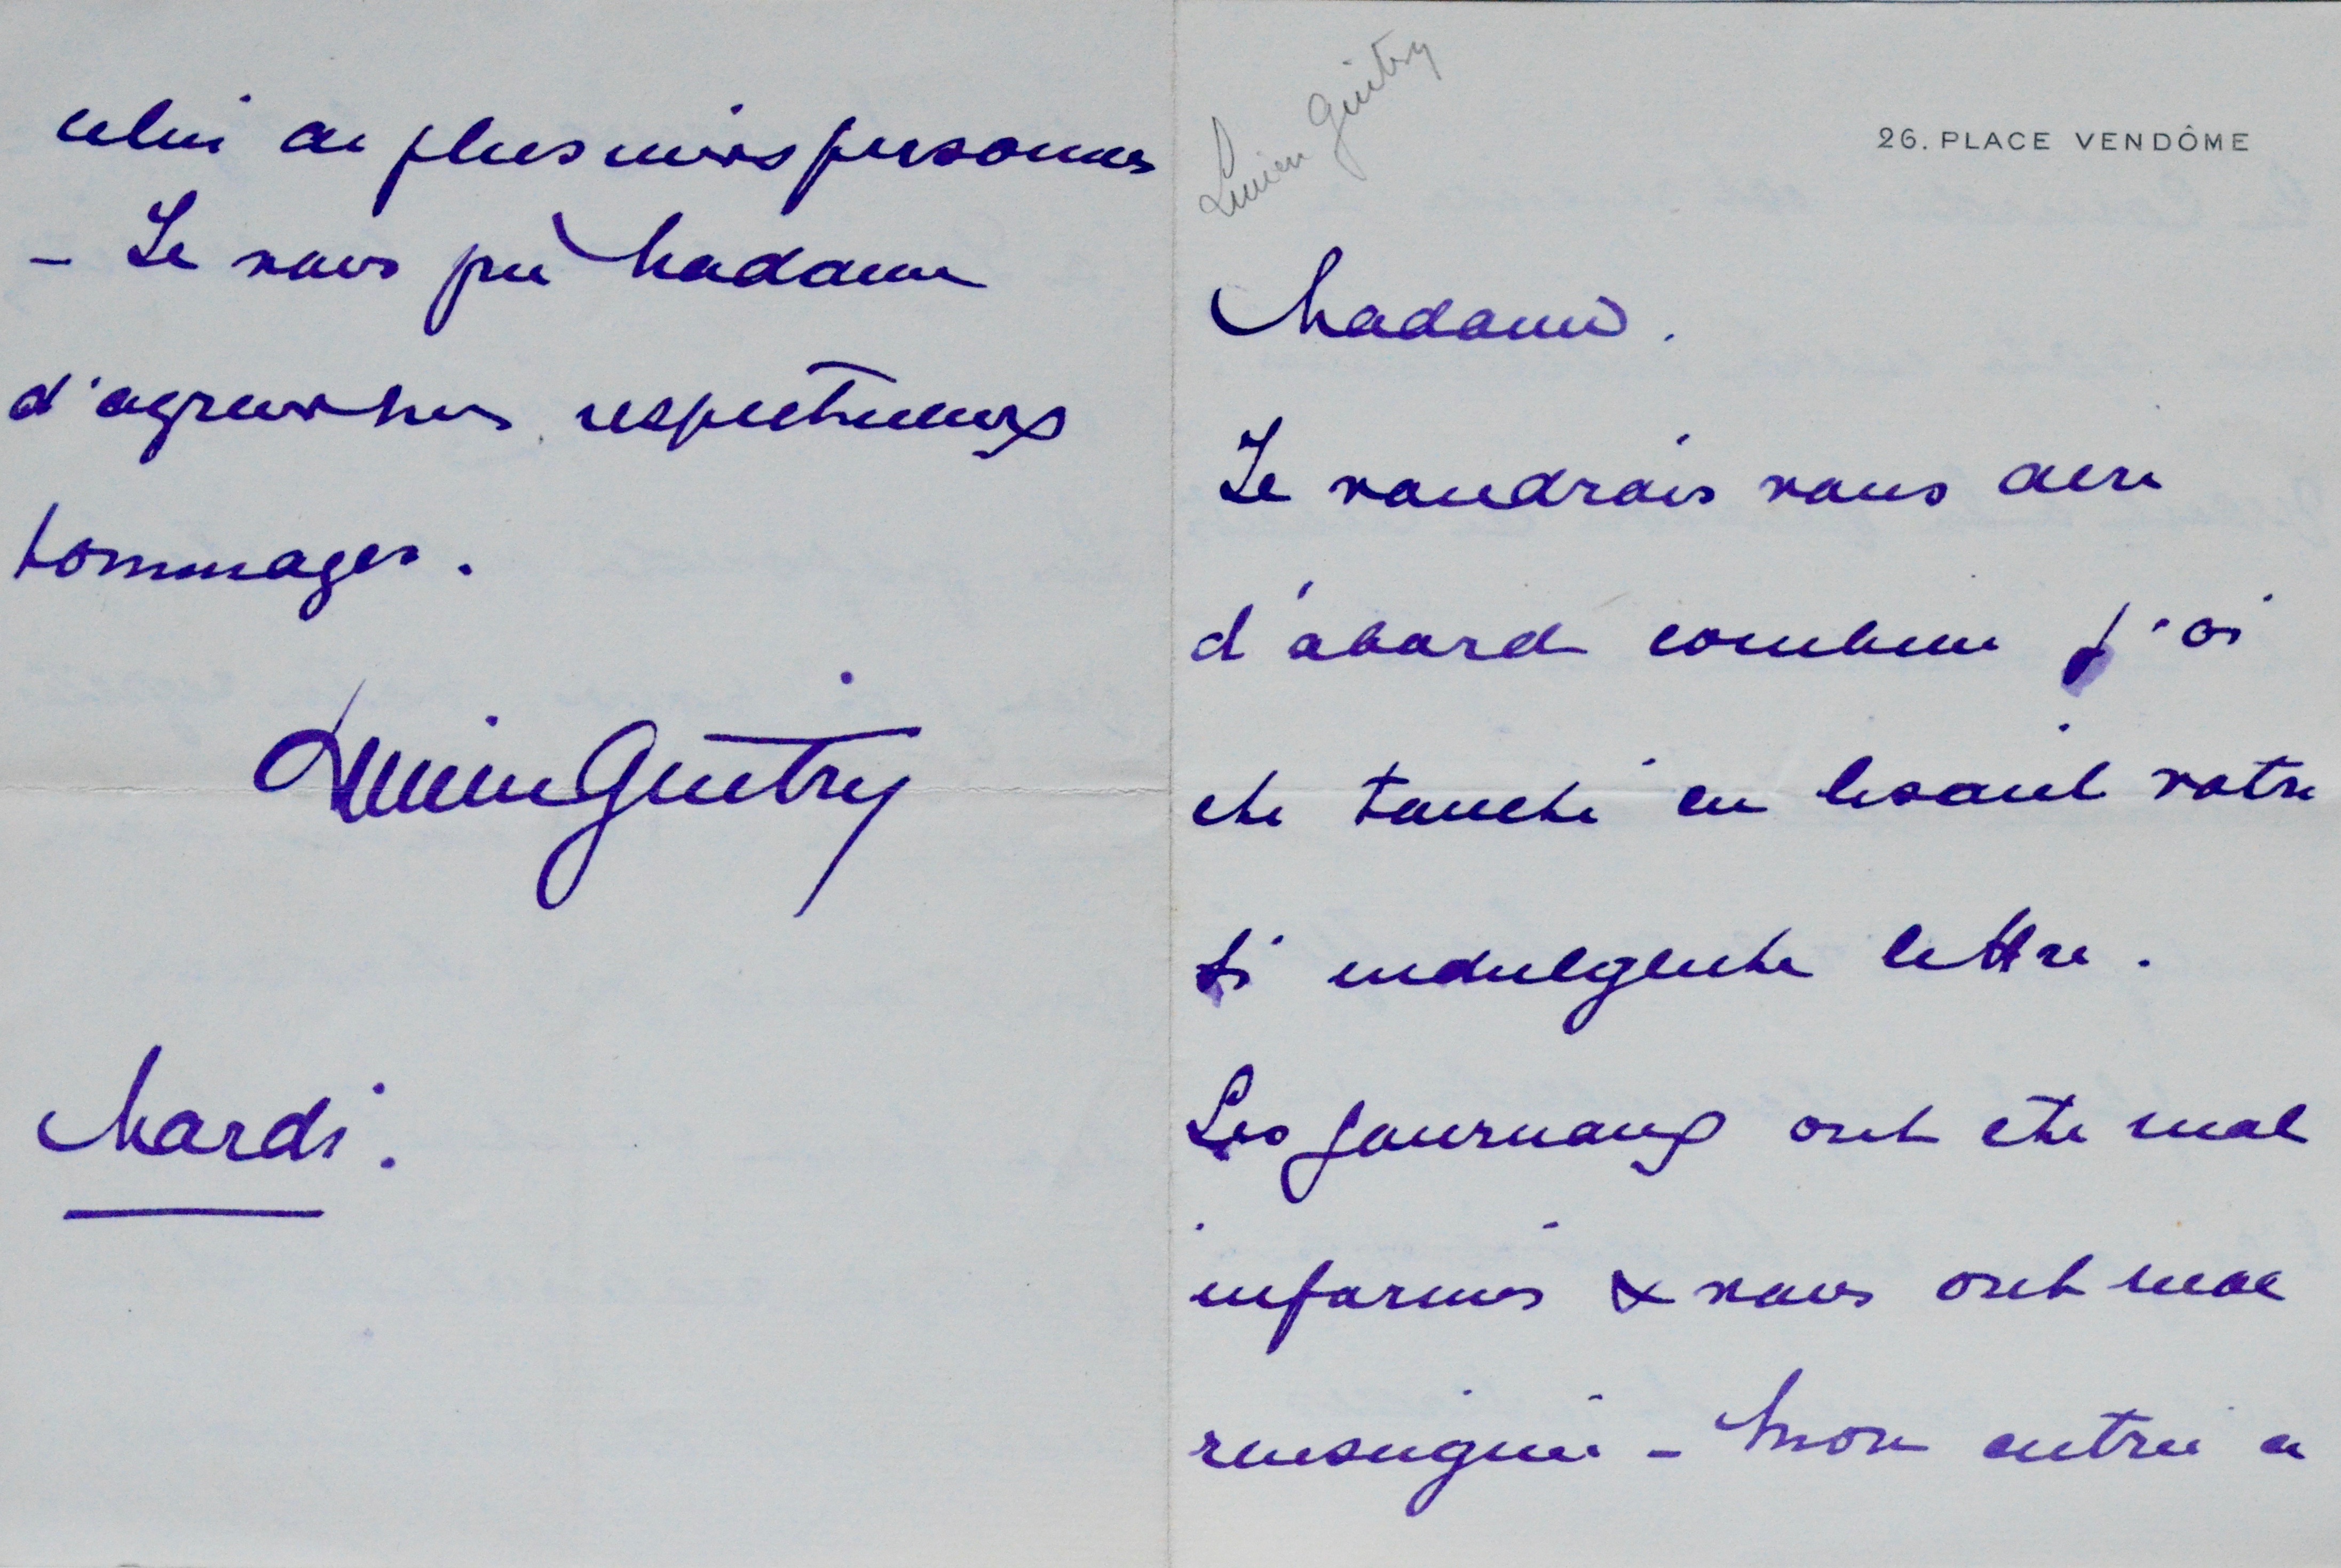 Lucien Guitry
26. PLACE VENDÔME
Madame.
Je voudrais vous dire
d'abord combien j'ai
été touché en lisant votre
si indulgente lettre.
Les journaux ont été mal
informés & vous ont mal
renseignée – Mon entrée à
celui de plusieurs personnes
– Je vous prie Madame
d'agréer mes respectueux
hommages.
Lucien Guitry
Mardi.